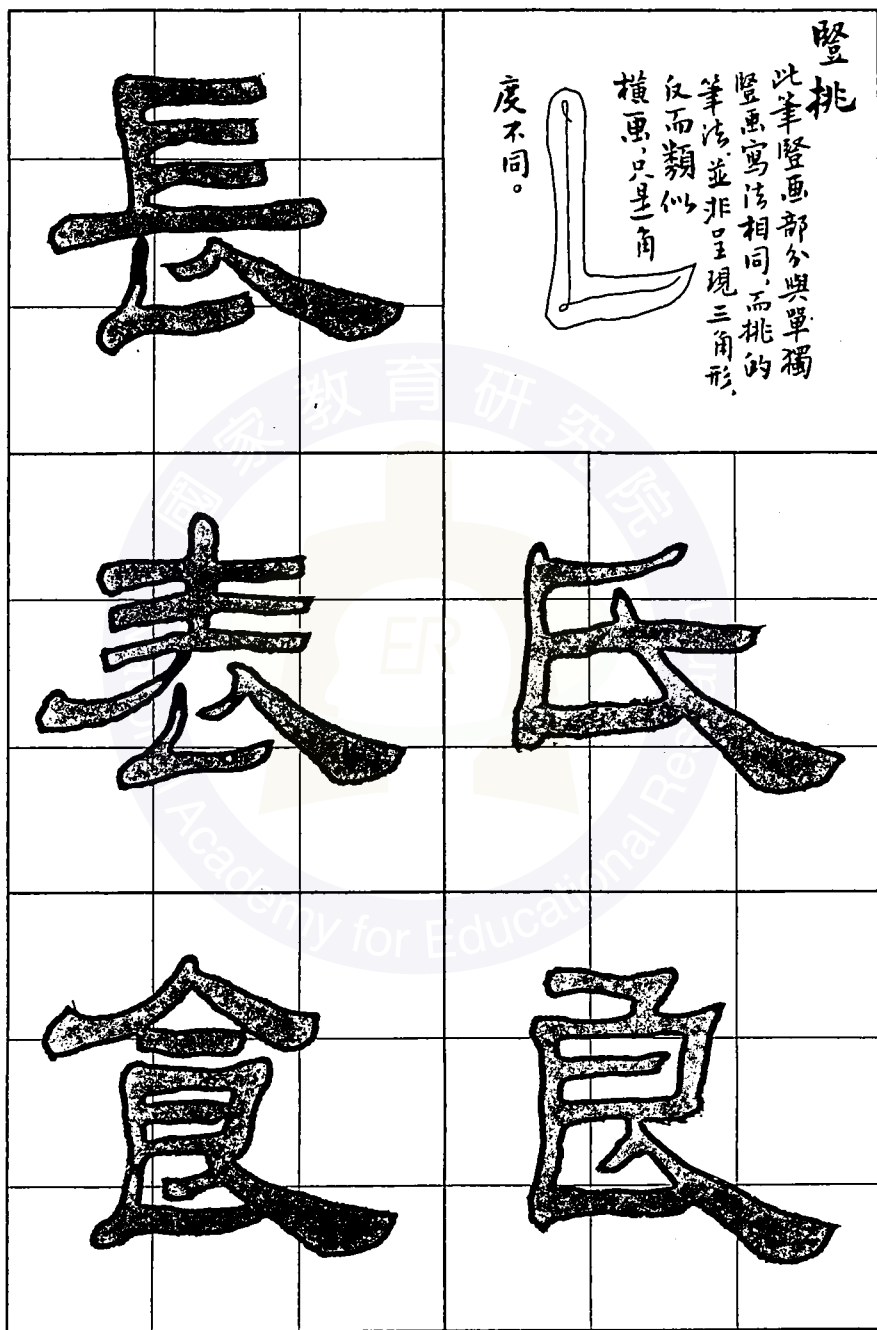 豎挑
此筆豎画部分與單獨
豎画寫法相同，而挑的
筆法並非呈現三角形，
反而類似
橫画，只是角
度不同。
氏
良
長
表
食
國家教育研究院
National Academy for Educational Research